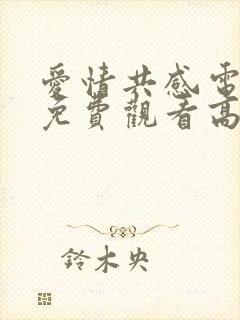 愛情共感電
免費觀看高
鈴木央